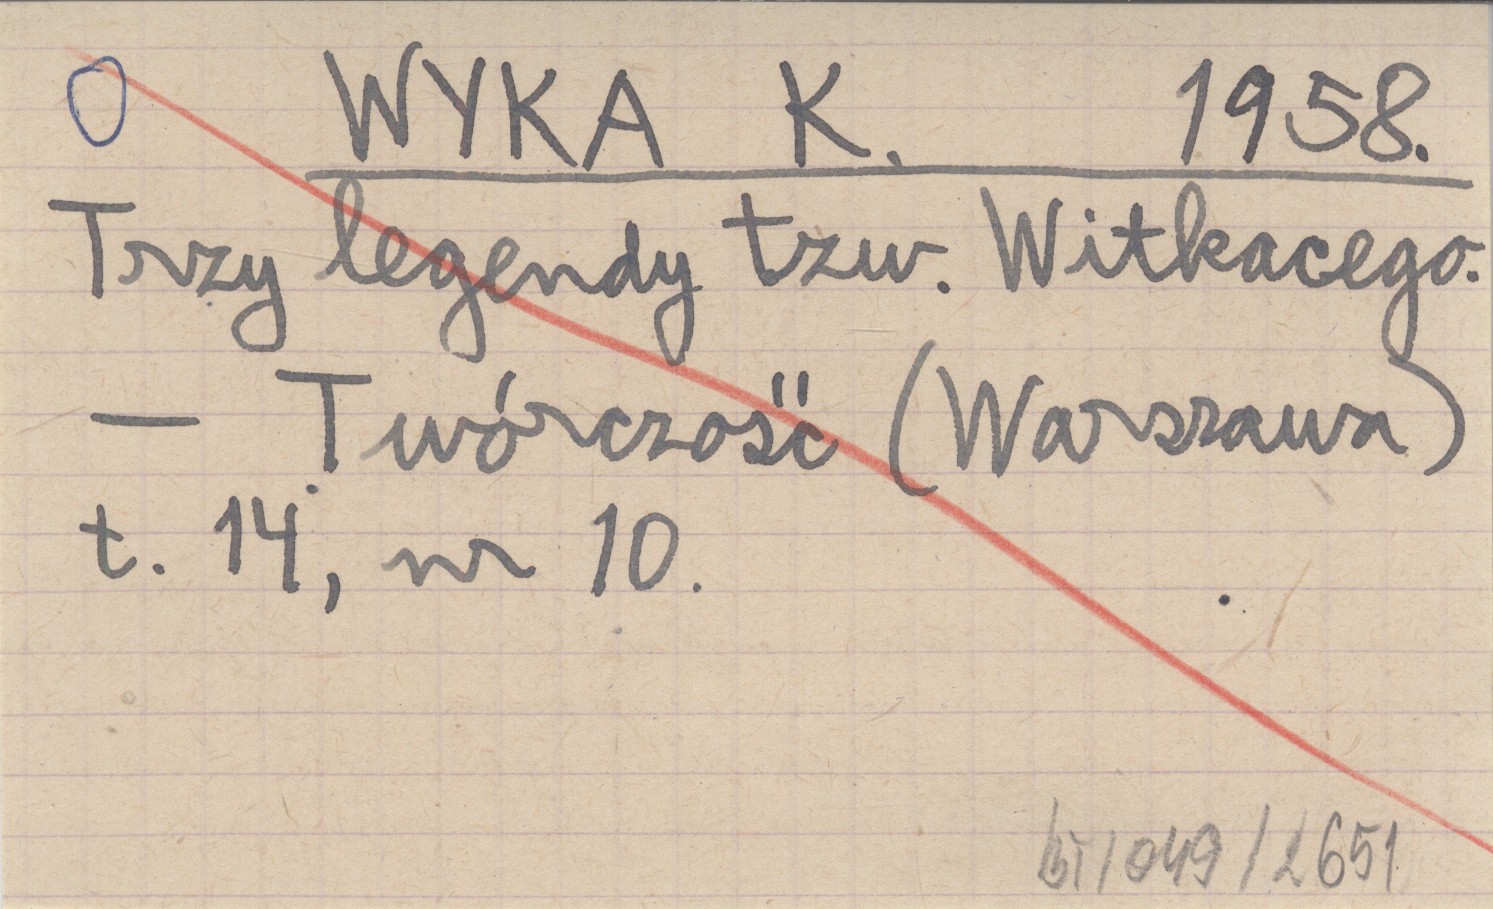 O WYKA K. 1958.
Trzy legendy tzw. Witkacego.
— Twórczość (Warszawa)
t. 14, nr 10.
BT/049/2651